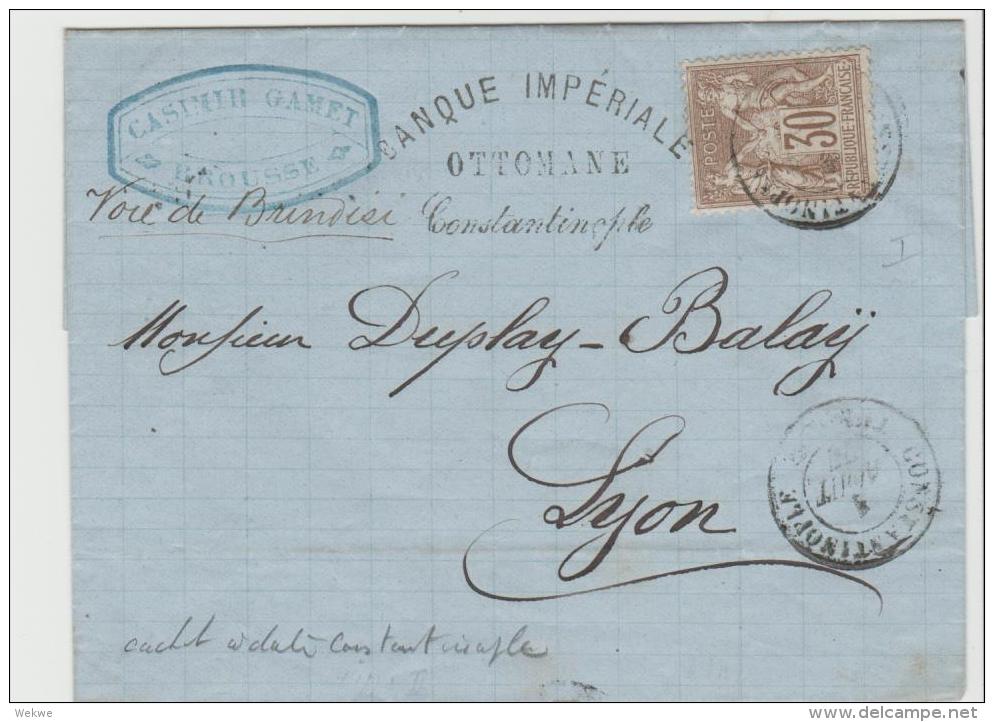 CASIMIR GAMET
BROUSSE
BANQUE IMPÉRIALE
OTTOMANE
Constantinople
Voie de Brindisi
POSTES
30
REPUBLIQUE FRANÇAISE
Monsieur Duplay-Balaÿ
Lyon
CONSTANTINOPLE
AOUT
cachet à date Constantinople
Wekwe
www.delcampe.net